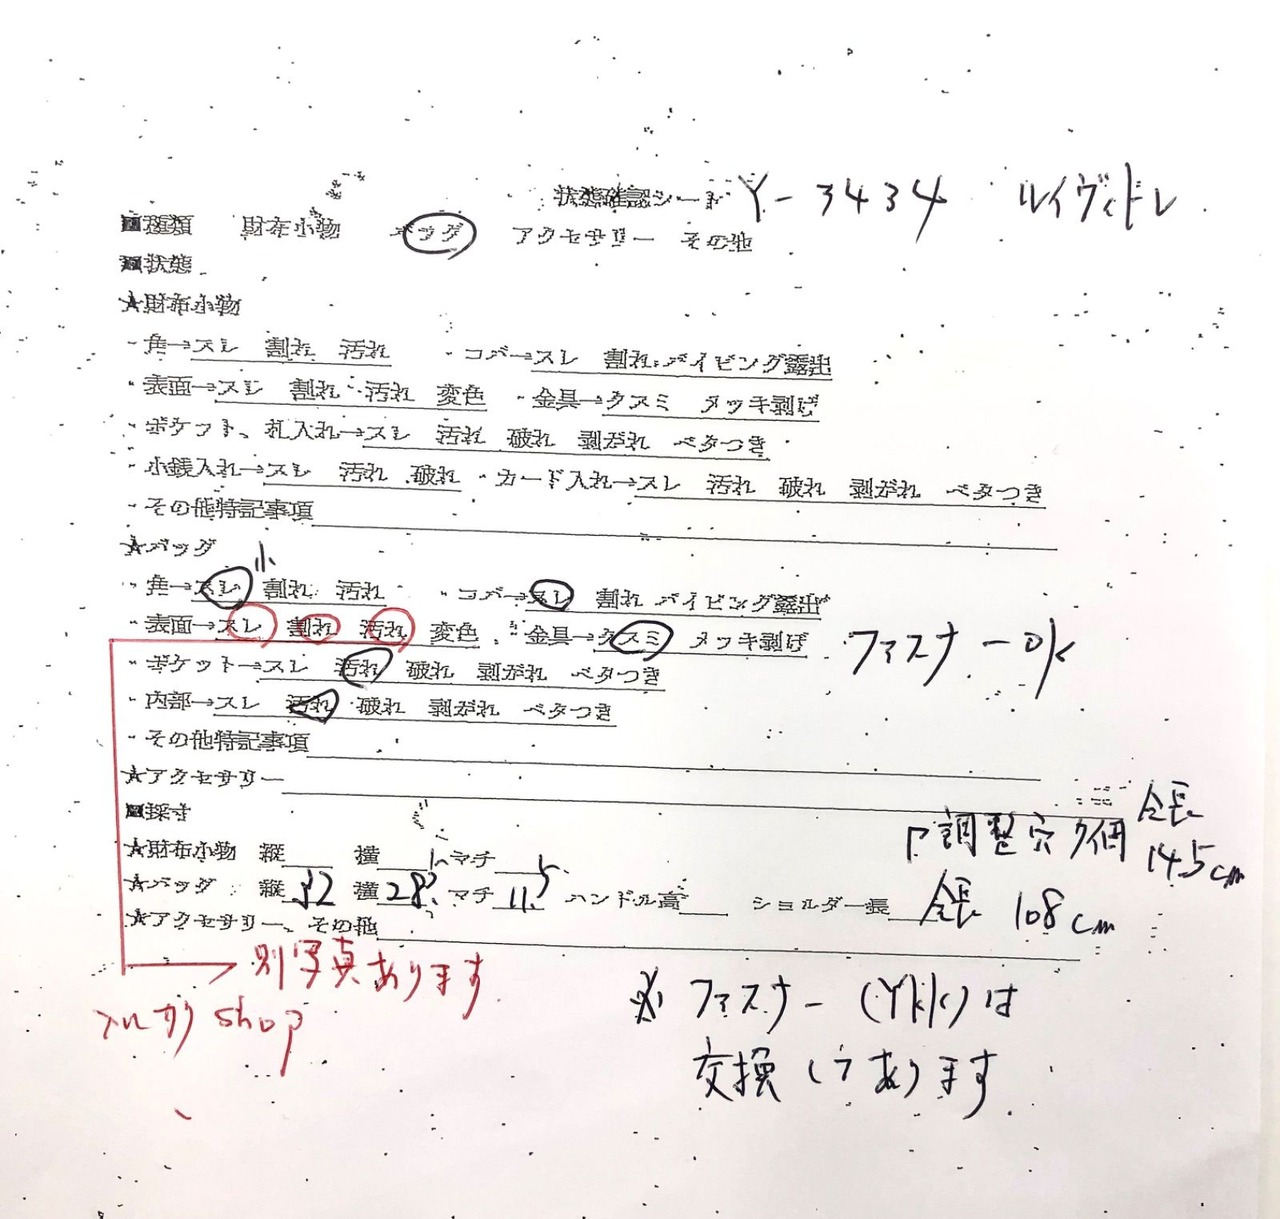 状態確認シート Y-3434 ルイヴィトン
■種類 財布小物 バッグ アクセサリー その他
■状態
★財布小物
・角→スレ 割れ 汚れ ・コバ→スレ 割れ パイピング露出
・表面→スレ 割れ 汚れ 変色 ・金具→クスミ メッキ剥げ
・ポケット、札入れ→スレ 汚れ 破れ 剥がれ ベタつき
・小銭入れ→スレ 汚れ 破れ ・カード入れ→スレ 汚れ 破れ 剥がれ ベタつき
・その他特記事項
★バッグ 小
・角→スレ 割れ 汚れ ・コバ→スレ 割れ パイピング露出
・表面→スレ 割れ 汚れ 変色 ・金具→クスミ メッキ剥げ ファスナーok
・ポケット→スレ 汚れ 破れ 剥がれ ベタつき
・内部→スレ 汚れ 破れ 剥がれ ベタつき
・その他特記事項
★アクセサリー
■採寸
調整穴 個 全長 145cm
★財布小物 縦 横 マチ
★バッグ 縦32 横28 マチ11.5 ハンドル高 ショルダー長 全長 108cm
★アクセサリー、その他
別写真あります
メルカリshop
※ ファスナー(YKK)は
交換してあります